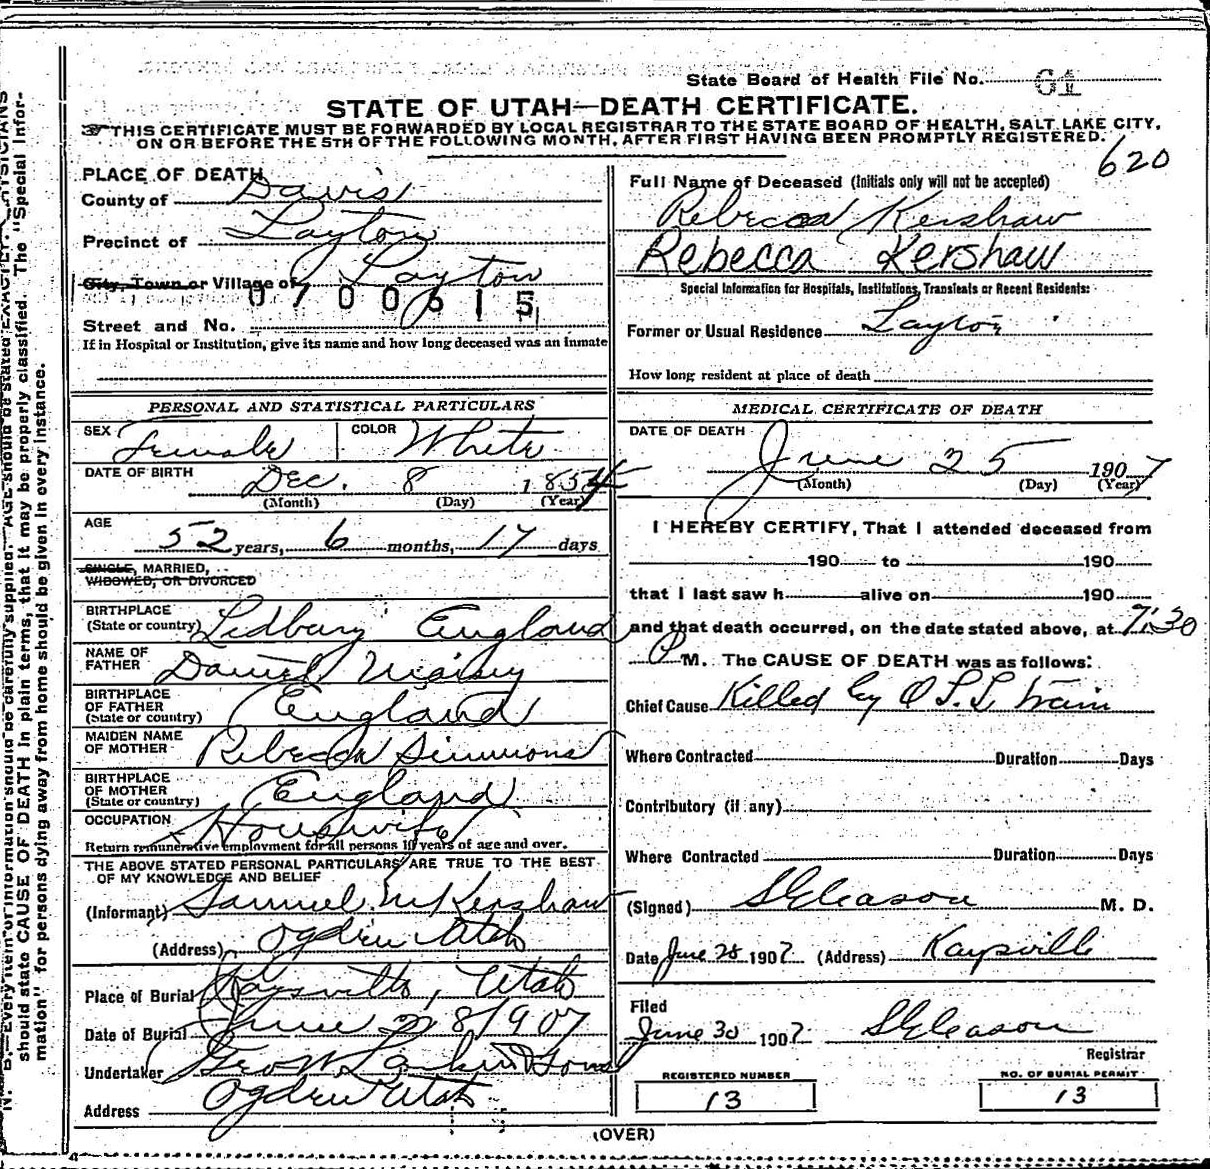 State Board of Health File No. 61
STATE OF UTAH—DEATH CERTIFICATE.
THIS CERTIFICATE MUST BE FORWARDED BY LOCAL REGISTRAR TO THE STATE BOARD OF HEALTH, SALT LAKE CITY,
ON OR BEFORE THE 5TH OF THE FOLLOWING MONTH, AFTER FIRST HAVING BEEN PROMPTLY REGISTERED.
620
PLACE OF DEATH
County of Davis
Precinct of Layton
City, Town or Village of Layton
0700615
Street and No.
If in Hospital or Institution, give its name and how long deceased was an inmate
PERSONAL AND STATISTICAL PARTICULARS
SEX Female COLOR White
DATE OF BIRTH Dec. 8 1854
(Month) (Day) (Year)
AGE
52 years, 6 months, 17 days
SINGLE, MARRIED,
WIDOWED, OR DIVORCED
BIRTHPLACE
(State or country) Ledbury England
NAME OF
FATHER Daniel
BIRTHPLACE
OF FATHER England
(State or country)
MAIDEN NAME
OF MOTHER Rebecca Simmons
BIRTHPLACE
OF MOTHER England
(State or country)
OCCUPATION Housewife
Return remunerative employment for all persons 10 years of age and over.
THE ABOVE STATED PERSONAL PARTICULARS ARE TRUE TO THE BEST
OF MY KNOWLEDGE AND BELIEF
(Informant) Samuel M Kershaw
(Address) Ogden Utah
Place of Burial Kaysville, Utah
Date of Burial June 28 1907
Undertaker Geo W Larkin & Sons
Address Ogden Utah
Full Name of Deceased (Initials only will not be accepted)
Rebecca Kershaw
Rebecca Kershaw
Special Information for Hospitals, Institutions, Transients or Recent Residents:
Former or Usual Residence Layton
How long resident at place of death
MEDICAL CERTIFICATE OF DEATH
DATE OF DEATH
June 25 1907
(Month) (Day) (Year)
I HEREBY CERTIFY, That I attended deceased from
190 to 190
that I last saw h alive on 190
and that death occurred, on the date stated above, at 7:30
P M. The CAUSE OF DEATH was as follows:
Chief Cause Killed by O S. L train
Where Contracted Duration Days
Contributory (if any)
Where Contracted Duration Days
(Signed) S Gleason M. D.
Date June 28 1907 (Address) Kaysville
Filed
June 30 1907 S Gleason
Registrar
REGISTERED NUMBER
13
NO. OF BURIAL PERMIT
13
(OVER)
should state CAUSE OF DEATH in plain terms, that it may be properly classified. The "Special Infor-
mation" for persons dying away from home should be given in every instance.